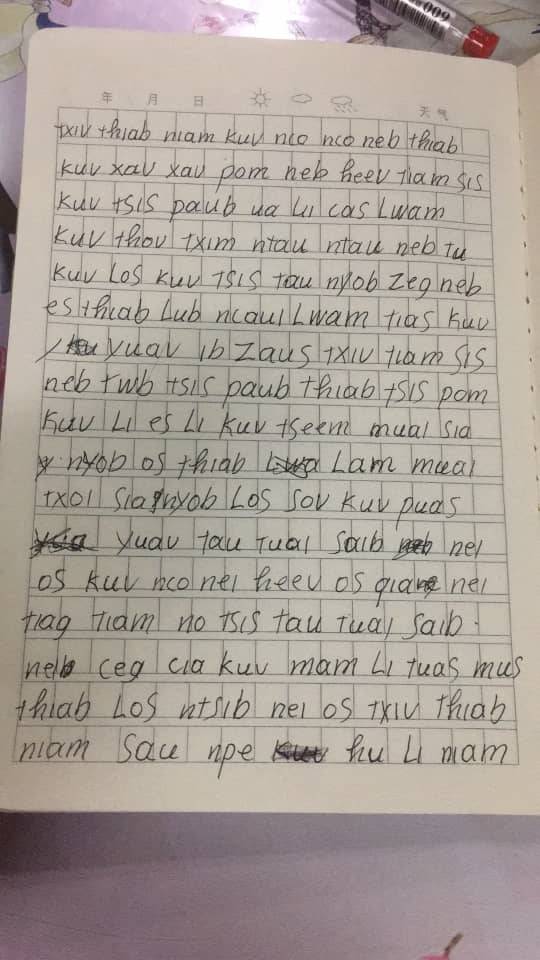 年 月 日 天气
txiv thiab niam kuv nco nco neb thiab
kuv xav xav pom neb heev tiam sis
kuv tsis paub ua li cas Lwam
kuv thov txim ntau ntau neb tu
kuv Los kuv tsis tau nyob zeg neb
es thiab Lub ncaui Lwam tias kuv
yuav ib zaus txiv tiam sis
neb twb tsis paub thiab tsis pom
kuv Li es Li kuv tseem muai sia
nyob os thiab Lam muai
txoi sia nyob Los sov kuv puas
yuav tau tuai saib nei
os kuv nco nei heev os qiang nei
tiag tiam no tsis tau tuai saib.
neb ceg cia kuv mam Li tuas mus
thiab Los ntsib nei os txiv thiab
niam sau npe hu Li niam